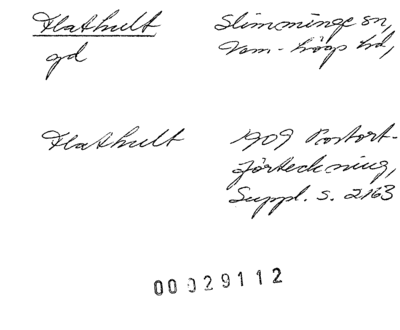 Flathult
Slimminge sn,
gd
Vem-högs hd,
Flathult
1909 Postort-
förteckning,
Suppl. s. 2163
00029112